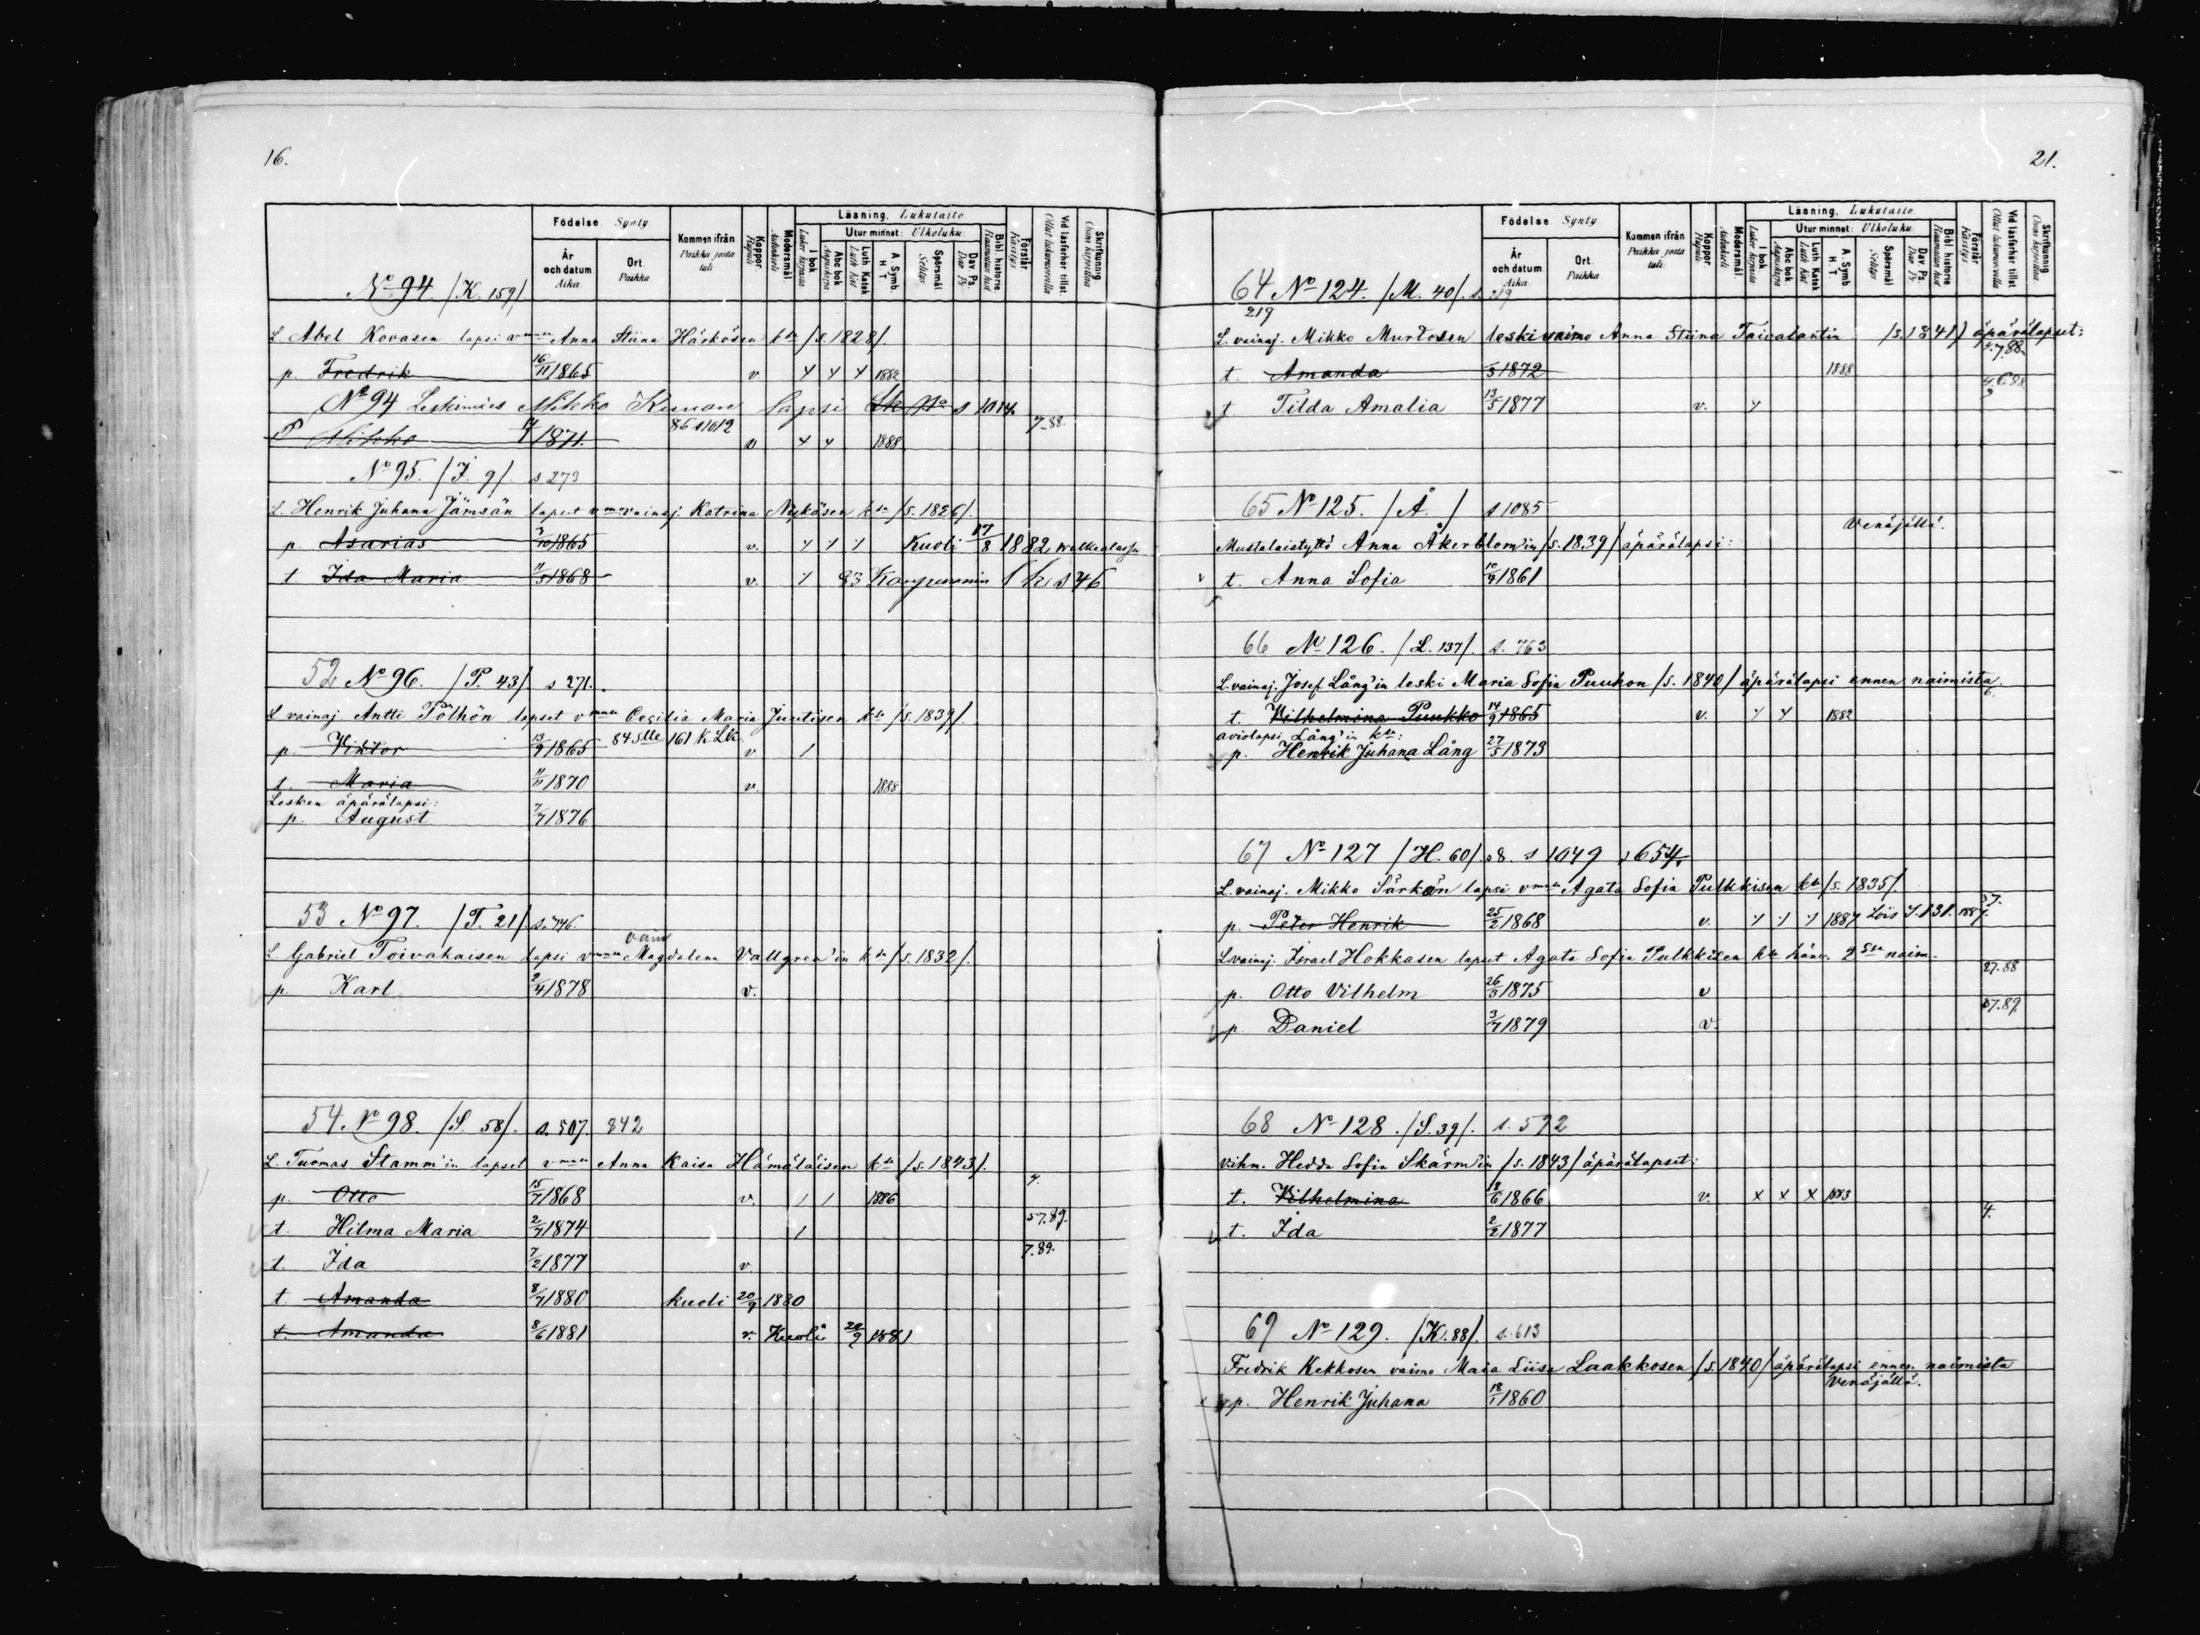 16.
Födelse Synty
Kommen ifrån Paikka josta tuli
Koppor Rupuli
Modersmål. Äidinkieli
Läsning. Lukutaito
Utur minnet: Ulkoluku
I bok
Abc bok
Luth. Katek
A. Symb. H. T.
Spörsmål
Dav. Ps.
Bibl. historie
Förstår Käsitys
Vid läsförhör tillst.
Skrifkunnig
År och datum Aika
Ort Paikka
No 94. /K. 159/
L. Abel Kovasen lapsi vmosta Anna Stiina Härkösen kta /s. 1828/.
p. Fredrik 16/11 1865 v 1882
No 94 Leskimies Mikko Kinnon lapsi
P Mikko 1871. 86 s 1012 v 1888 7.88.
No 95. /J. 9/. s 273
L. Henrik Juhana Jämsän lapset vmo vainaj. Katrina Nykäsen kta /s. 1826/.
p. Asarias 3/10 1865 v. Kuoli 17/8 1882
t Ida Maria 11/5 1868 v. 83 s 46
52 No 96. /P. 43/. s 271.
L vainaj Antti Pölhön lapset vmosta Cecilia Maria Juutisen kta /s. 1839/.
p. Viktor 13/9 1865 84 Slle 161 K Lk v
t. Maria 11/11 1870 v. 1888
Lesken äpärälapsi:
p. August 7/7 1876
53 No 97. /T. 21/. s. 746.
L. Gabriel Toivakaisen lapsi vmosta vain Magdalena Vallgren'in kta /s. 1832/.
p. Karl 2/4 1878 v.
54 No 98. /S. 58/. s. 507. 842
L. Tuomas Stamm'in lapset vmosta Anna Kaisa Hämäläisen kta /s. 1843/.
p. Otto 15/7 1868 v. 1886 7.
t. Hilma Maria 2/7 1874 57.89.
t. Ida 7/2 1877 v. 7.89.
t. Amanda 8/7 1880 kuoli 20/9 1880
t. Amanda 8/6 1881 v. Kuoli 20/9 1881
21.
Födelse Synty
Kommen ifrån Paikka josta tuli
Koppor Rupuli
Modersmål. Äidinkieli
Läsning. Lukutaito
Utur minnet: Ulkoluku
I bok
Abc bok
Luth. Katek
A. Symb. H. T.
Spörsmål
Dav. Ps.
Bibl. historie
Förstår Käsitys
Vid läsförhör tillst.
Skrifkunnig
År och datum Aika
Ort Paikka
64 No 124. /M. 40/. s. 219
219
L. vainaj. Mikko Murtosen leskivaimo Anna Stiina Taivalantin /s. 1841/ äpärälapset:
t. Amanda 1872 1888 7.88.
t Tilda Amalia 13/5 1877 v.
65 No 125. /Å / s 1085
Venäjällä.
Mustalaistyttö Anna Åkerblom'in /s. 1839/ äpärälapsi:
t. Anna Sofia 10/9 1861
66 No 126. /L. 137/. s. 763
L. vainaj. Josef Lång'in leski Maria Sofia Puukon /s. 1840/ äpärälapsi ennen naimista
t. Vilhelmina Puukko 14/9 1865 v. 1882 6.
aviolapsi Lång'in kta:
p. Henrik Juhana Lång 27/5 1873
67 No 127 /H. 60/. s 8. s 1049 s 654
L. vainaj. Mikko Särkän lapsi vmosta Agata Sofia Pulkkisen kta /s. 1835/
p. Peter Henrik 25/2 1868 v. 1887
L. vainaj. Israel Hokkasen lapset Agata Sofia Pulkkisen kta häner. 2sta naim.
p. Otto Vilhelm 26/3 1875 v 27.88
p Daniel 3/7 1879 v. 57.89.
68 No 128. /S. 39/. s. 592
vihn. Hedda Sofia Skärm'in /s. 1843/ äpärälapset:
t. Vilhelmina 18/6 1866 v. x x x 1883
t. Ida 2/2 1877 7.
69 No 129. /K. 88/. s. 613
Fredrik Kekkosen vaimo Maia Liisa Laakkosen /s. 1840/ äpärälapsi ennen naimista
Venäjällä.
p. Henrik Juhana 18/1 1860